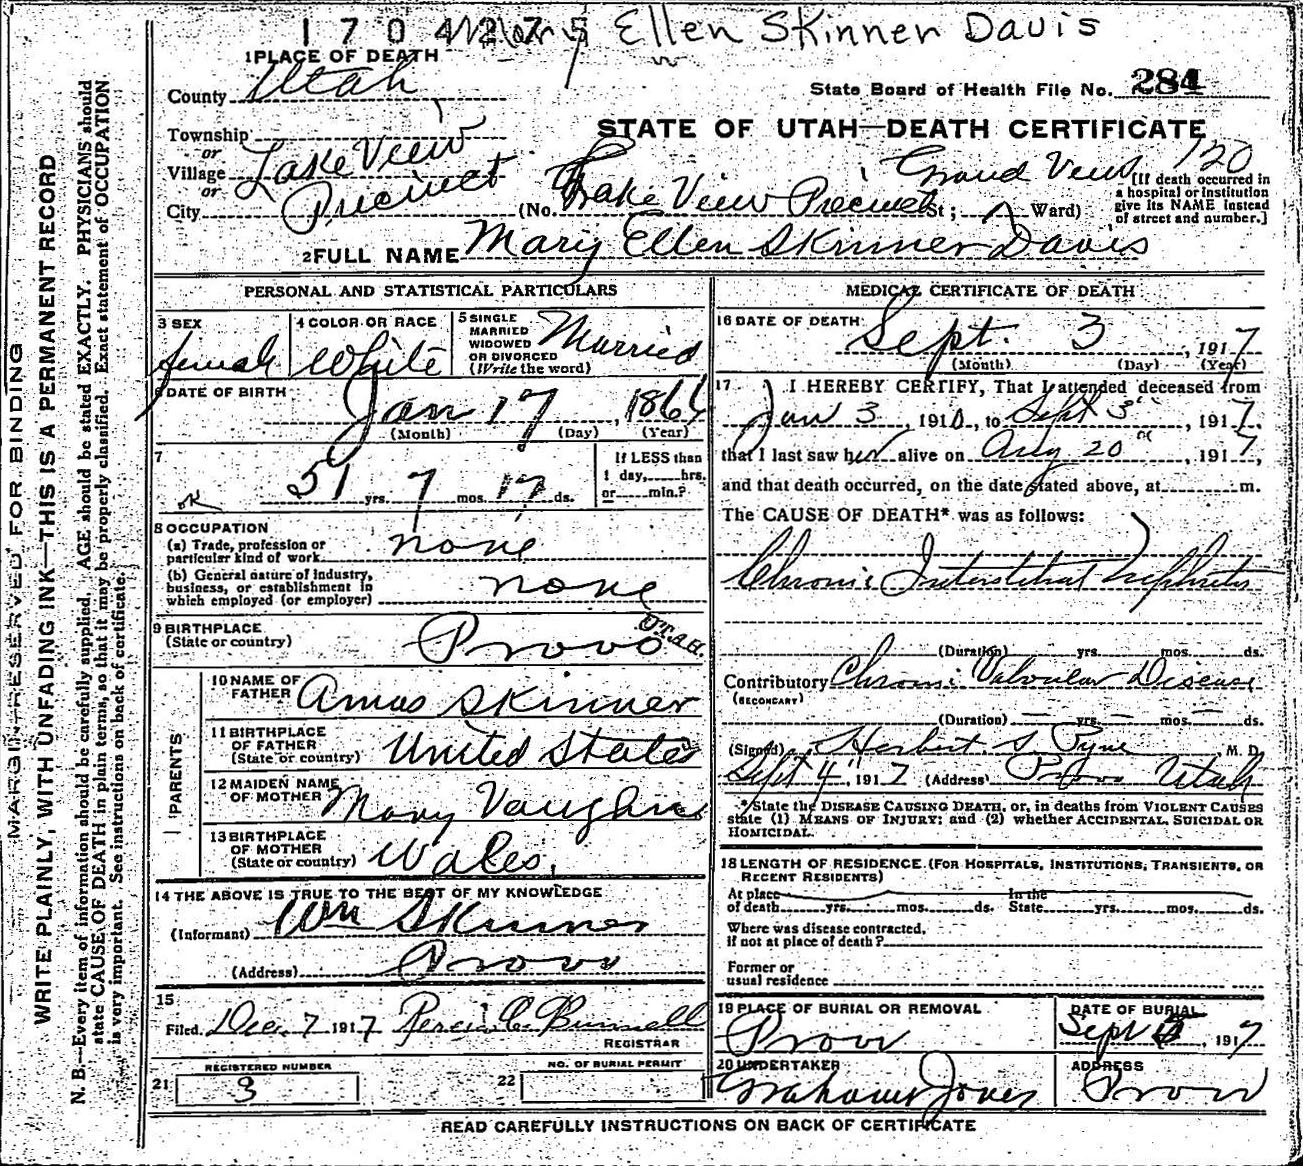 1704275 Mary Ellen Skinner Davis
1 PLACE OF DEATH
County Utah
State Board of Health File No. 284
STATE OF UTAH—DEATH CERTIFICATE
Township
or
Village Lake View
or
City Precinct
Grand View 120
(No. Lake View Precinct St; Ward)
[If death occurred in
a hospital or institution
give its NAME instead
of street and number.]
2 FULL NAME Mary Ellen Skinner Davis
PERSONAL AND STATISTICAL PARTICULARS
3 SEX
female
4 COLOR OR RACE
White
5 SINGLE
MARRIED
WIDOWED
OR DIVORCED
(Write the word)
Married
6 DATE OF BIRTH
Jan 17, 1866
(Month) (Day) (Year)
7
ok 51 yrs. 7 mos. 17 ds.
If LESS than
1 day,......hrs.
or......min.?
8 OCCUPATION
(a) Trade, profession or
particular kind of work none
(b) General nature of industry,
business, or establishment in
which employed (or employer) none
9 BIRTHPLACE
(State or country) Provo UTAH.
PARENTS
10 NAME OF
FATHER Amos Skinner
11 BIRTHPLACE
OF FATHER
(State or country) United States
12 MAIDEN NAME
OF MOTHER Mary Vaughn
13 BIRTHPLACE
OF MOTHER
(State or country) Wales.
14 THE ABOVE IS TRUE TO THE BEST OF MY KNOWLEDGE
(Informant) Wm Skinner
(Address) Provo
15
Filed Dec. 7 1917 Bunnell
REGISTRAR
REGISTERED NUMBER
21 3
NO. OF BURIAL PERMIT
22
MEDICAL CERTIFICATE OF DEATH
16 DATE OF DEATH
Sept. 3, 1917
(Month) (Day) (Year)
17 I HEREBY CERTIFY, That I attended deceased from
Jan 3, 1910, to Sept 3", 1917,
that I last saw her alive on Aug 20", 1917,
and that death occurred, on the date stated above, at m.
The CAUSE OF DEATH* was as follows:
Chronic Interstitial Nephritis
(Duration) yrs. mos. ds.
Contributory Chronic Valvular Disease
(SECONDARY)
(Duration) — yrs. — mos. — ds.
(Signed) Herbert S. Pyne, M. D.
Sept 4", 1917 (Address) Provo Utah
*State the DISEASE CAUSING DEATH, or, in deaths from VIOLENT CAUSES
state (1) MEANS OF INJURY; and (2) whether ACCIDENTAL, SUICIDAL OR
HOMICIDAL.
18 LENGTH OF RESIDENCE. (FOR HOSPITALS, INSTITUTIONS, TRANSIENTS, OR
RECENT RESIDENTS)
At place In the
of death yrs. mos. ds. State yrs. mos. ds.
Where was disease contracted,
if not at place of death?
Former or
usual residence
19 PLACE OF BURIAL OR REMOVAL
Provo
DATE OF BURIAL
Sept , 1917
20 UNDERTAKER
Graham Jones
ADDRESS
Provo
READ CAREFULLY INSTRUCTIONS ON BACK OF CERTIFICATE
MARGIN RESERVED FOR BINDING
WRITE PLAINLY, WITH UNFADING INK—THIS IS A PERMANENT RECORD
N. B.—Every item of information should be carefully supplied. AGE should be stated EXACTLY. PHYSICIANS should
state CAUSE OF DEATH in plain terms, so that it may be properly classified. Exact statement of OCCUPATION
is very important. See instructions on back of certificate.